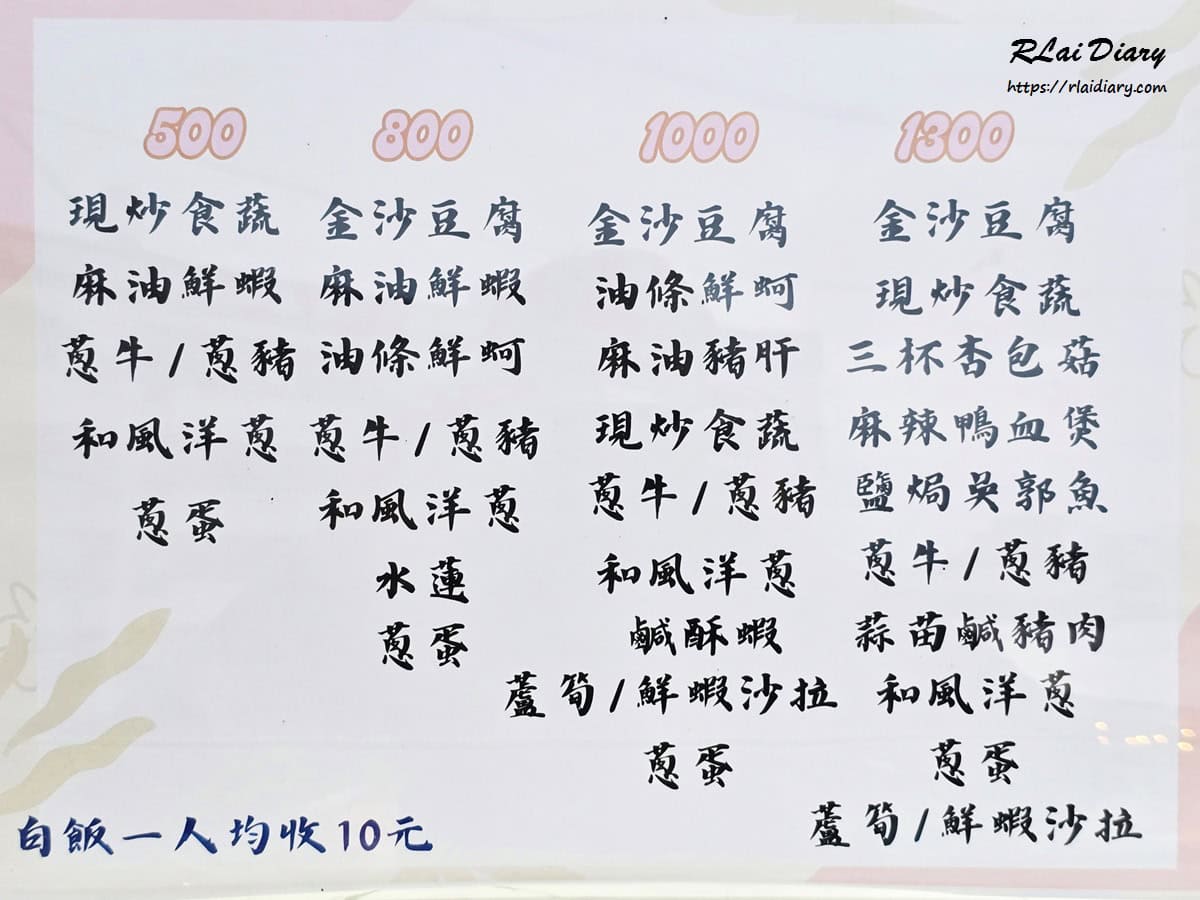 RLai Diary
https://rlaidiary.com
500
現炒食蔬
麻油鮮蝦
蔥牛/蔥豬
和風洋蔥
蔥蛋
800
金沙豆腐
麻油鮮蝦
油條鮮蚵
蔥牛/蔥豬
和風洋蔥
水蓮
蔥蛋
1000
金沙豆腐
油條鮮蚵
麻油豬肝
現炒食蔬
蔥牛/蔥豬
和風洋蔥
鹹酥蝦
蘆筍/鮮蝦沙拉
蔥蛋
1300
金沙豆腐
現炒食蔬
三杯杏包菇
麻辣鴨血煲
鹽焗吳郭魚
蔥牛/蔥豬
蒜苗鹹豬肉
和風洋蔥
蔥蛋
蘆筍/鮮蝦沙拉
白飯一人均收10元